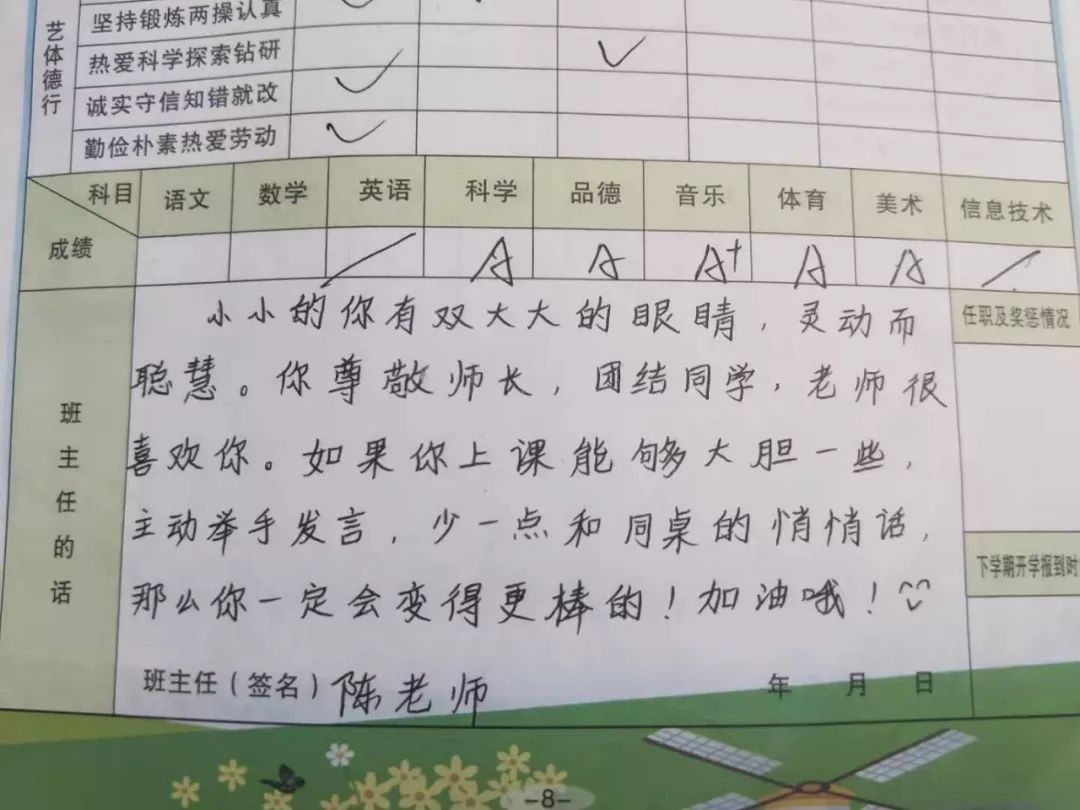 艺体德行
坚持锻炼两操认真
热爱科学探索钻研
诚实守信知错就改
勤俭朴素热爱劳动
科目 语文 数学 英语 科学 品德 音乐 体育 美术 信息技术
成绩 A A A+ A A
班主任的话
小小的你有双大大的眼睛，灵动而
聪慧。你尊敬师长，团结同学，老师很
喜欢你。如果你上课能够大胆一些，
主动举手发言，少一点和同桌的悄悄话，
那么你一定会变得更棒的！加油哦！
班主任（签名）陈老师 年 月 日
任职及奖惩情况
下学期开学报到时
-8-